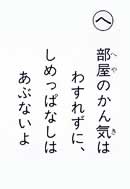 へ
部屋のかん気は
わすれずに、
しめっぱなしは
あぶないよ